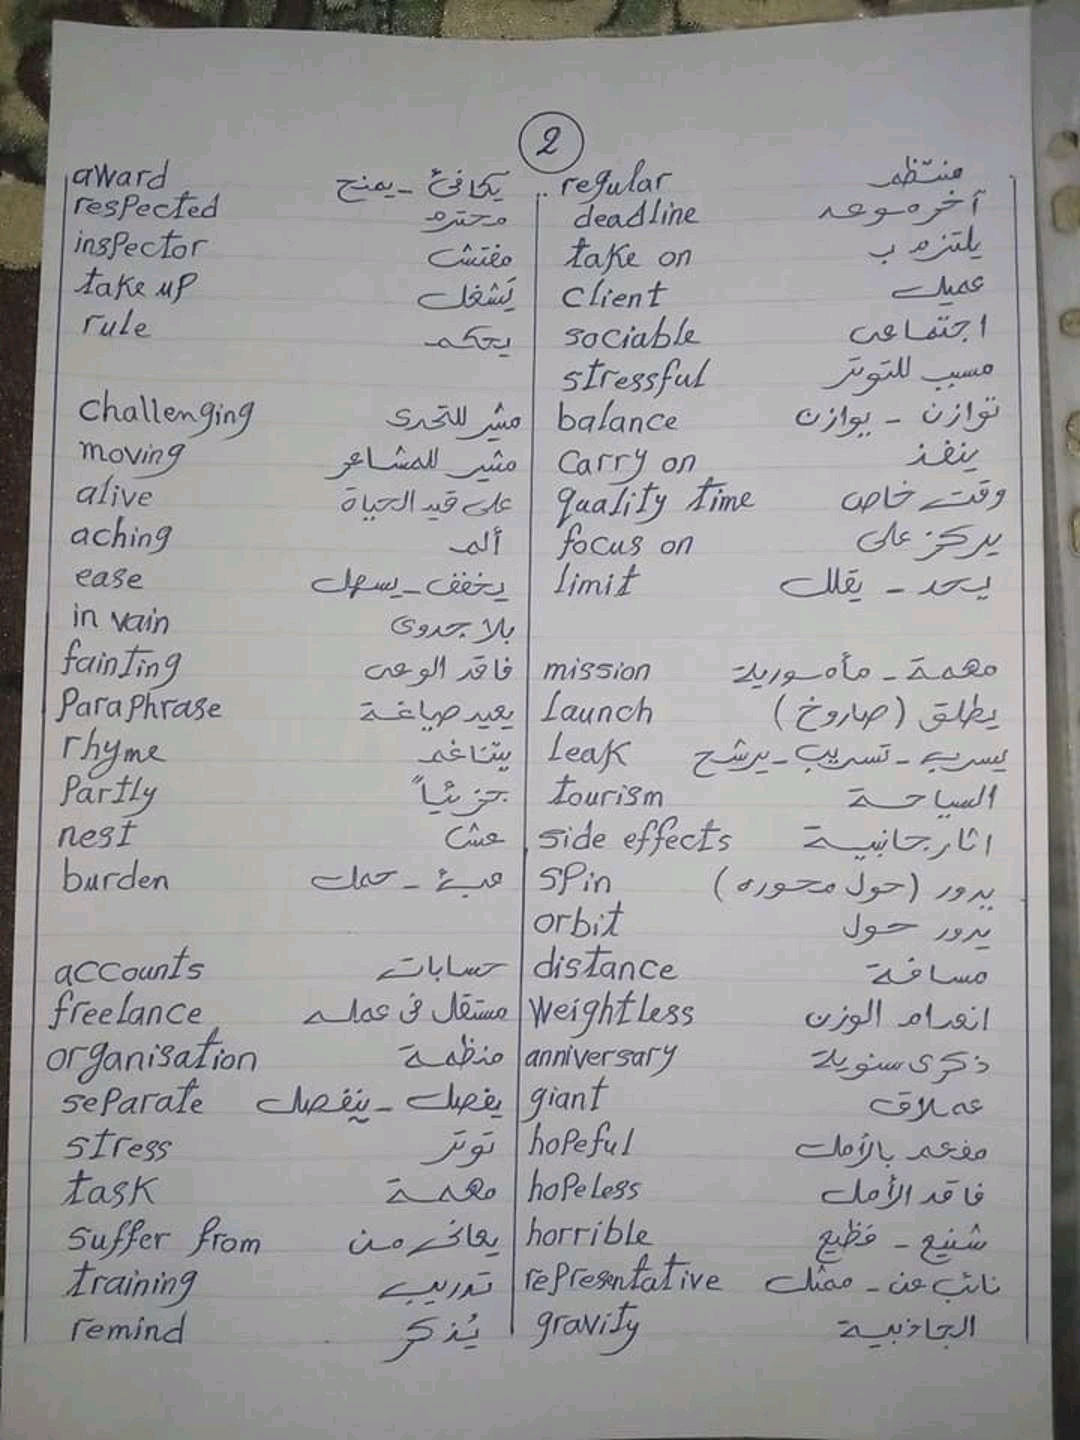 2
award يكافئ - يمنح
respected محترم
inspector مفتش
take up يَشغل
rule يحكم
challenging مثير للتحدى
moving مثير للمشاعر
alive على قيد الحياة
aching ألم
ease يخفف - يسهل
in vain بلا جدوى
fainting فاقد الوعى
Paraphrase يعيد صياغة
rhyme يتناغم
Partly جزئياً
nest عش
burden عبئ - حمل
accounts حسابات
freelance مستقل فى عمله
organisation منظمة
separate يفصل - ينفصل
stress توتر
task مهمة
suffer from يعانى من
training تدريب
remind يُذكر
regular منتظم
deadline آخر موعد
take on يلتزم ب
client عميل
sociable اجتماعى
stressful مسبب للتوتر
balance توازن - يوازن
carry on ينفذ
quality time وقت خاص
focus on يركز على
limit يحد - يقلل
mission مهمة - مأمورية
Launch يطلق (صاروخ)
Leak يسرب - تسريب - يرشح
tourism السياحة
side effects اثار جانبية
spin يدور (حول محوره)
orbit يدور حول
distance مسافة
Weightless انعدام الوزن
anniversary ذكرى سنوية
giant عملاق
hopeful مفعم بالأمل
hopeless فاقد الأمل
horrible شنيع - فظيع
representative نائب عن - ممثل
gravity الجاذبية